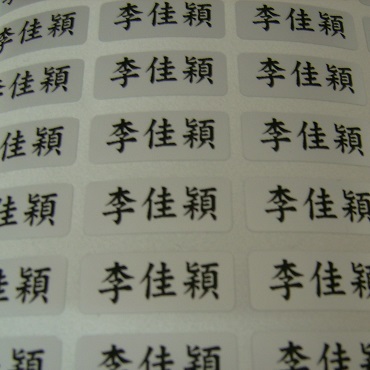 李佳穎 李佳穎 李佳穎
李佳穎 李佳穎 李佳穎
李佳穎 李佳穎 李佳穎
佳穎 李佳穎 李佳穎
佳穎 李佳穎 李佳穎
穎 李佳穎 李佳穎